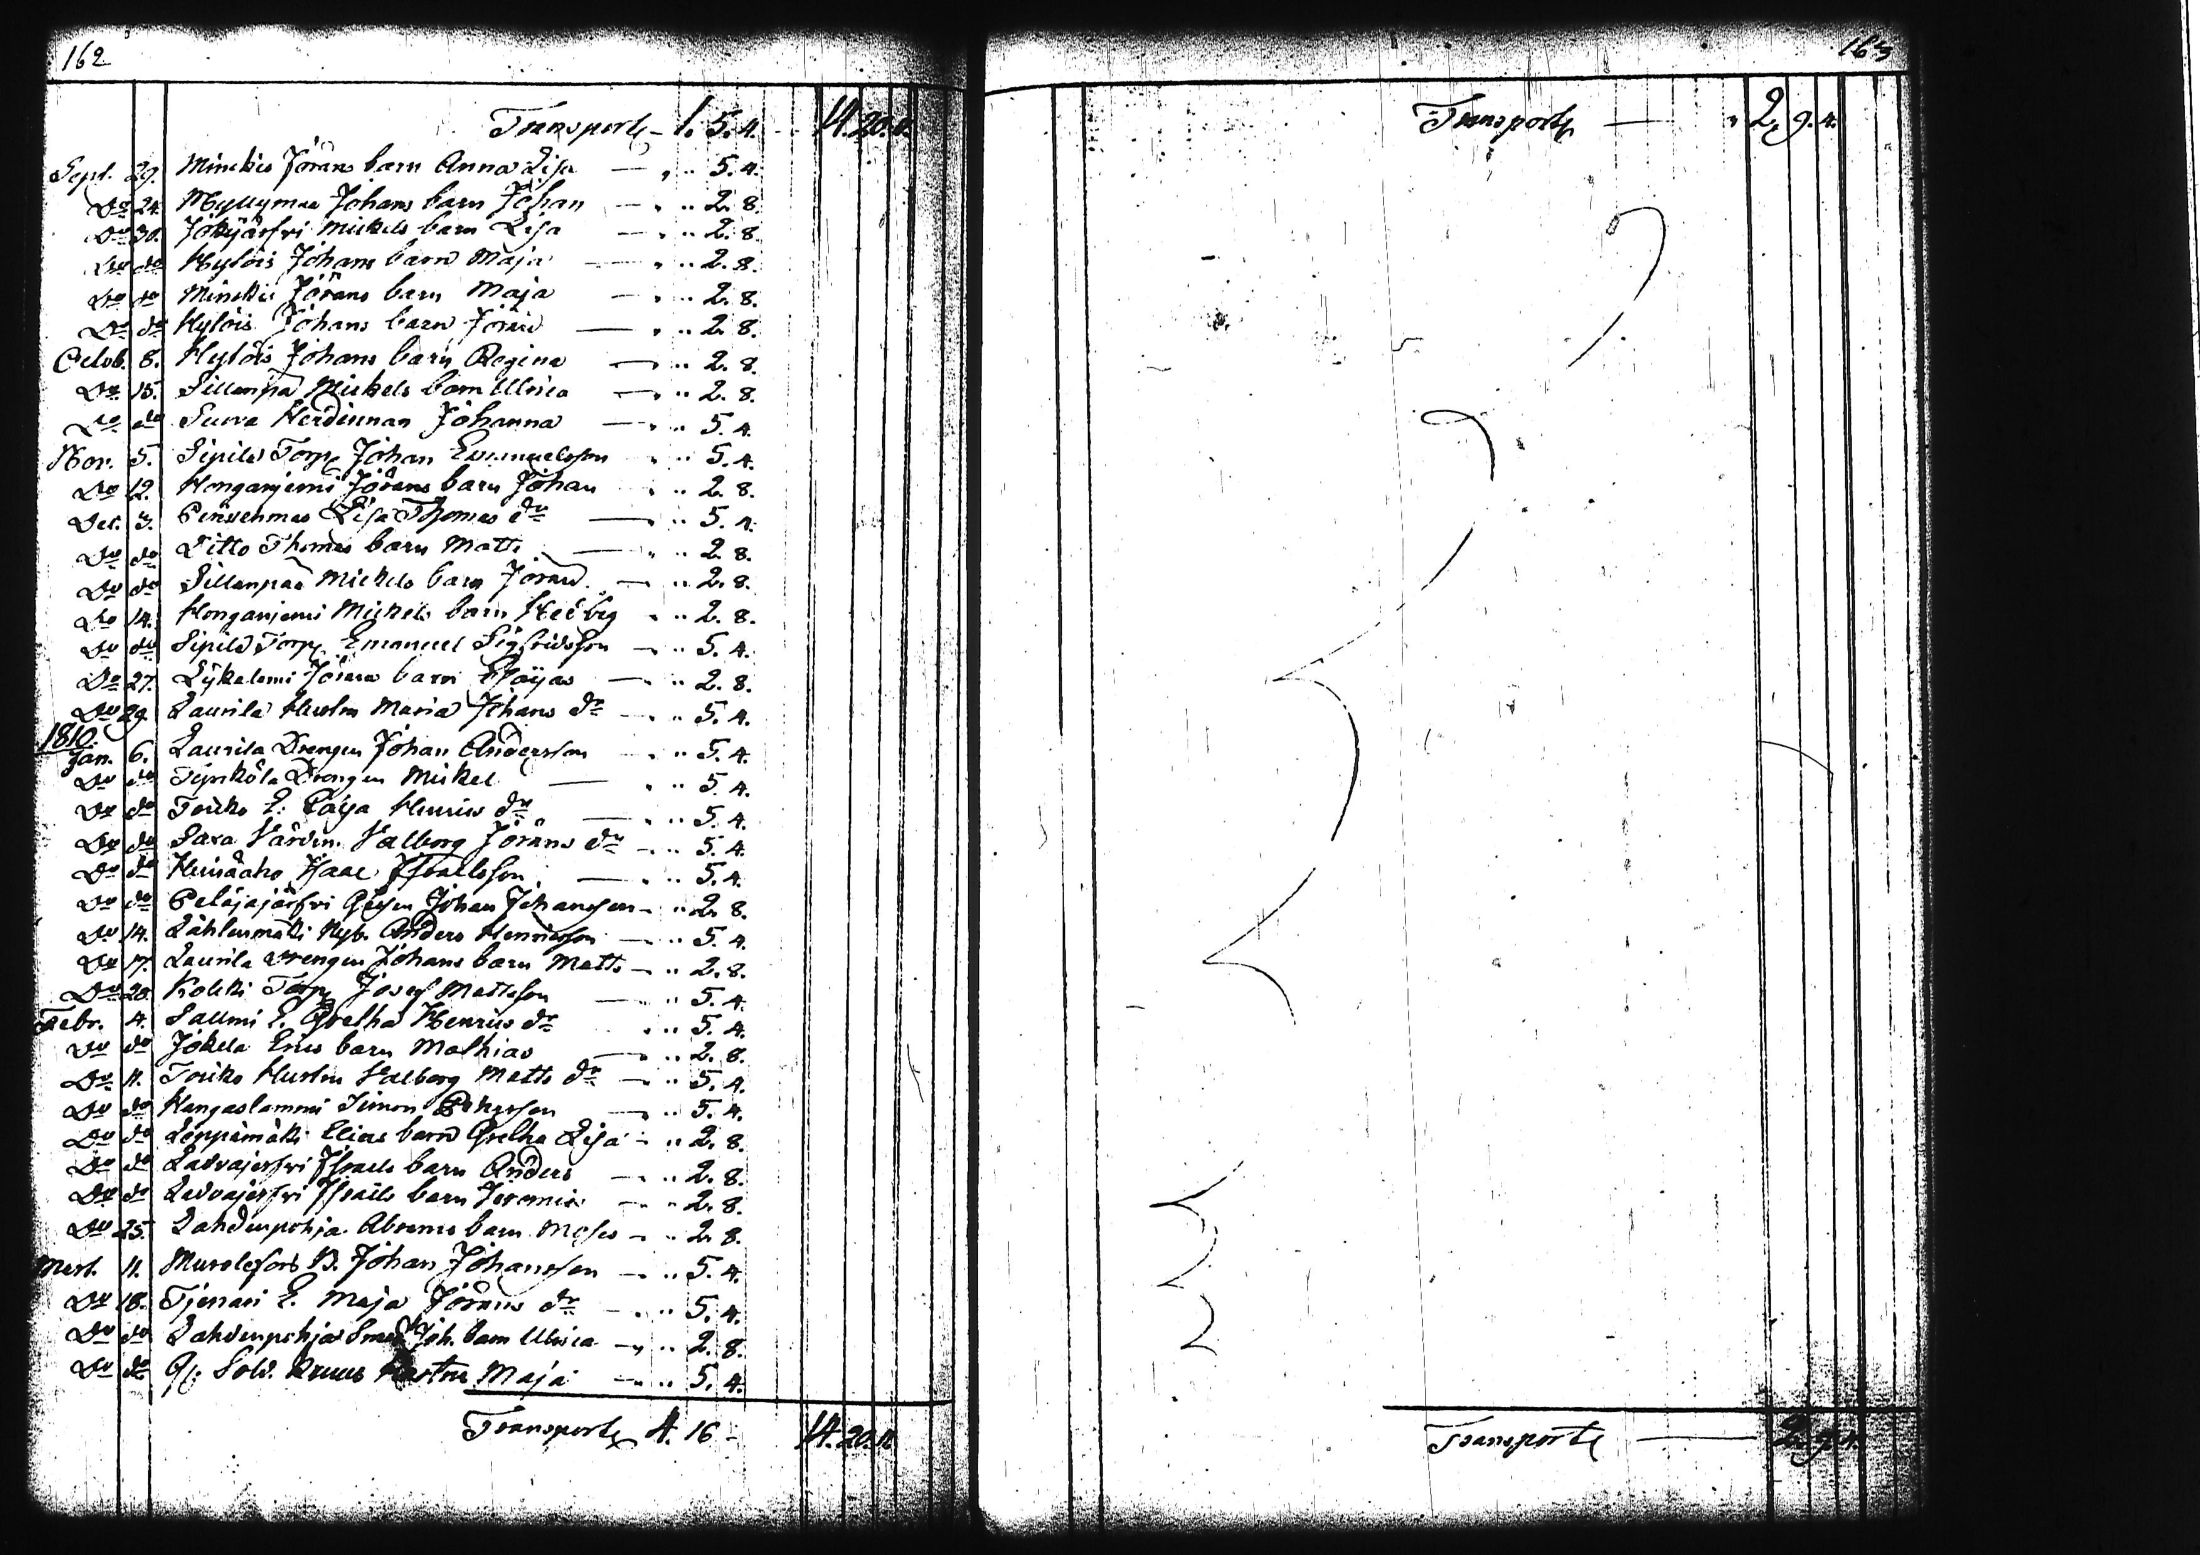 162
Transport - 1. 5. 4. 14. 20. 11.
Sept. 29. Minckis Jörans barn Anna Lisa — " 5. 4.
Do 24. Myllymaa Johans barn Johan — " 2. 8.
Do 30. Jokijärfvi Mickels barn Lisa — " 2. 8.
Do do Kylöis Johans barn Maja — " 2. 8.
Do do Minckis Jörans barn Maja — " 2. 8.
Do do Kylöis Johans barn Jöran — " 2. 8.
Octob. 8. Kylöis Johans barn Regina — " 2. 8.
Do 15. Sillanpä Mickels barn Ulrica — " 2. 8.
Do do Johanna — " 5. 4.
Nov. 5. Sipilä Torp Johan Emanuelsson " 5. 4.
Do 12. Honganjemi Jörans barn Johan " 2. 8.
Dec. 3. Lisa Thomas dr — " 5. 4.
Do do Ditto Thomas barn Matts — " 2. 8.
Do do Sillanpää Mickels barn Jöran — " 2. 8.
Do 14. Honganjemi Mickels barn Hedvig " 2. 8.
Do do Sipilä Torp Emanuel Sigfridsson — " 5. 4.
Do 27. Lykelemi Jörans barn — " 2. 8.
Do 29. Laurila Hustru Maria Johans dr — " 5. 4.
1810.
Jan. 6. Laurila Drengen Johan Andersson — " 5. 4.
Do do Drengen Mickel — " 5. 4.
Do do Toriko E. Caisa Henrics dr — " 5. 4.
Do do Sara Valborg Jörans dr — " 5. 4.
Do do Heinäaho Isaac Israelsson — " 5. 4.
Do do Peläjäjärfvi Johan Johansson — " 2. 8.
Do 14. Lähteenmäki Nyb. Anders Henricsson — " 5. 4.
Do 17. Laurila Drengen Johans barn Matts — " 2. 8.
Do 20. Kolcki Torp Josef Mattsson — " 5. 4.
Febr. 4. Salmi E. Gretha Henrics dr " 5. 4.
Do do Jokela Erics barn Mathias — " 2. 8.
Do 11. Toriko Hustru Valborg Matts dr — " 5. 4.
Do do Kangaslammi Simon — " 5. 4.
Do do Leppämäki Elias barn Gretha Lisa — " 2. 8.
Do do Ladvajerfvi Israels barn Anders — " 2. 8.
Do do Ladvajerfvi Israels barn Jeremia — " 2. 8.
Do 25. Lahdenpohja Abrams barn Moses — " 2. 8.
Mart. 11. B. Johan Johansson — " 5. 4.
Do 18. Tjenari E. Maja Jörans dr — " 5. 4.
Do do Lahdenpohja Joh. barn Ulrica — " 2. 8.
Do do Sold. Maja — " 5. 4.
Transport 4. 16 - 14. 20. 11
163
Transport — " 2. 9. 4.
Transport — 2. 9. 4.